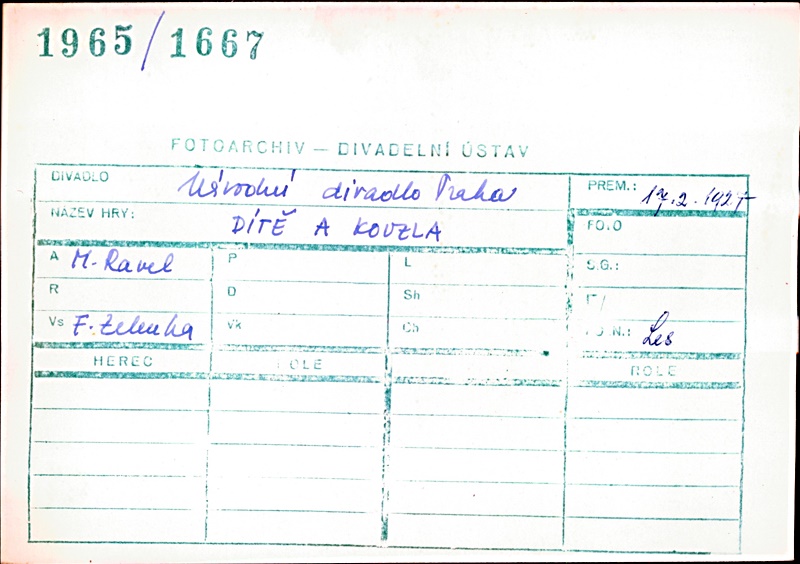 1965/1667
FOTOARCHIV — DIVADELNÍ ÚSTAV
DIVADLO Národní divadlo Praha PREM.: 17.2.1927
NÁZEV HRY: DÍTĚ A KOUZLA FO.O
A M. Ravel P L S.G.:
R D Sh
Vs F. Zelenka Vk Ch N.: Les
HEREC ROLE ROLE